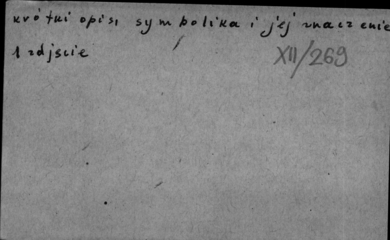 krótki opis, symbolika i jej znaczenie
1 zdjęcie
XII/269